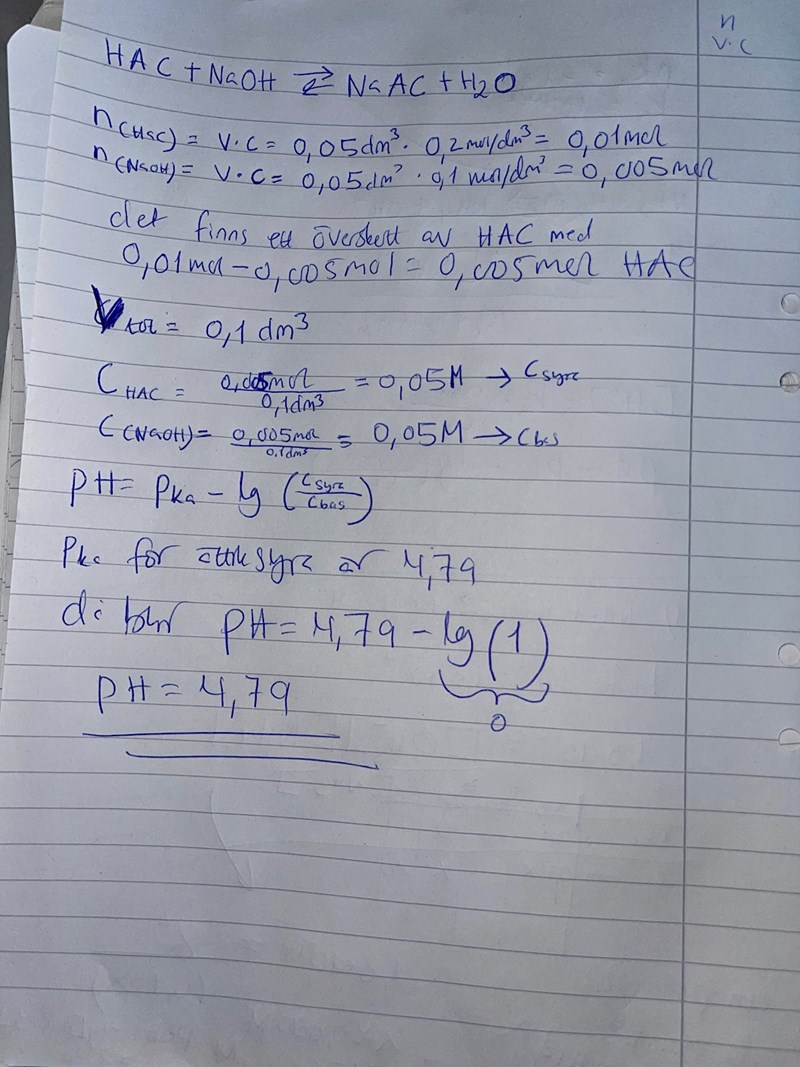 n
v·c
HAC + NaOH ⇄ NaAC + H2O
n(HAC) = V·C = 0,05dm³ · 0,2mol/dm³ = 0,01mol
n(NaOH) = V·C = 0,05dm³ · 0,1 mol/dm³ = 0,005mol
det finns ett överskott av HAC med
0,01mol - 0,005mol = 0,005mol HAC
Vtot = 0,1 dm³
CHAC = 0,005mol/0,1dm³ = 0,05M → Csyra
C(NaOH) = 0,005mol/0,1dm³ = 0,05M → Cbas
PH = Pka - lg (Csyra/Cbas)
Pka för ättiksyra är 4,79
då blir PH = 4,79 - lg(1)
0
PH = 4,79